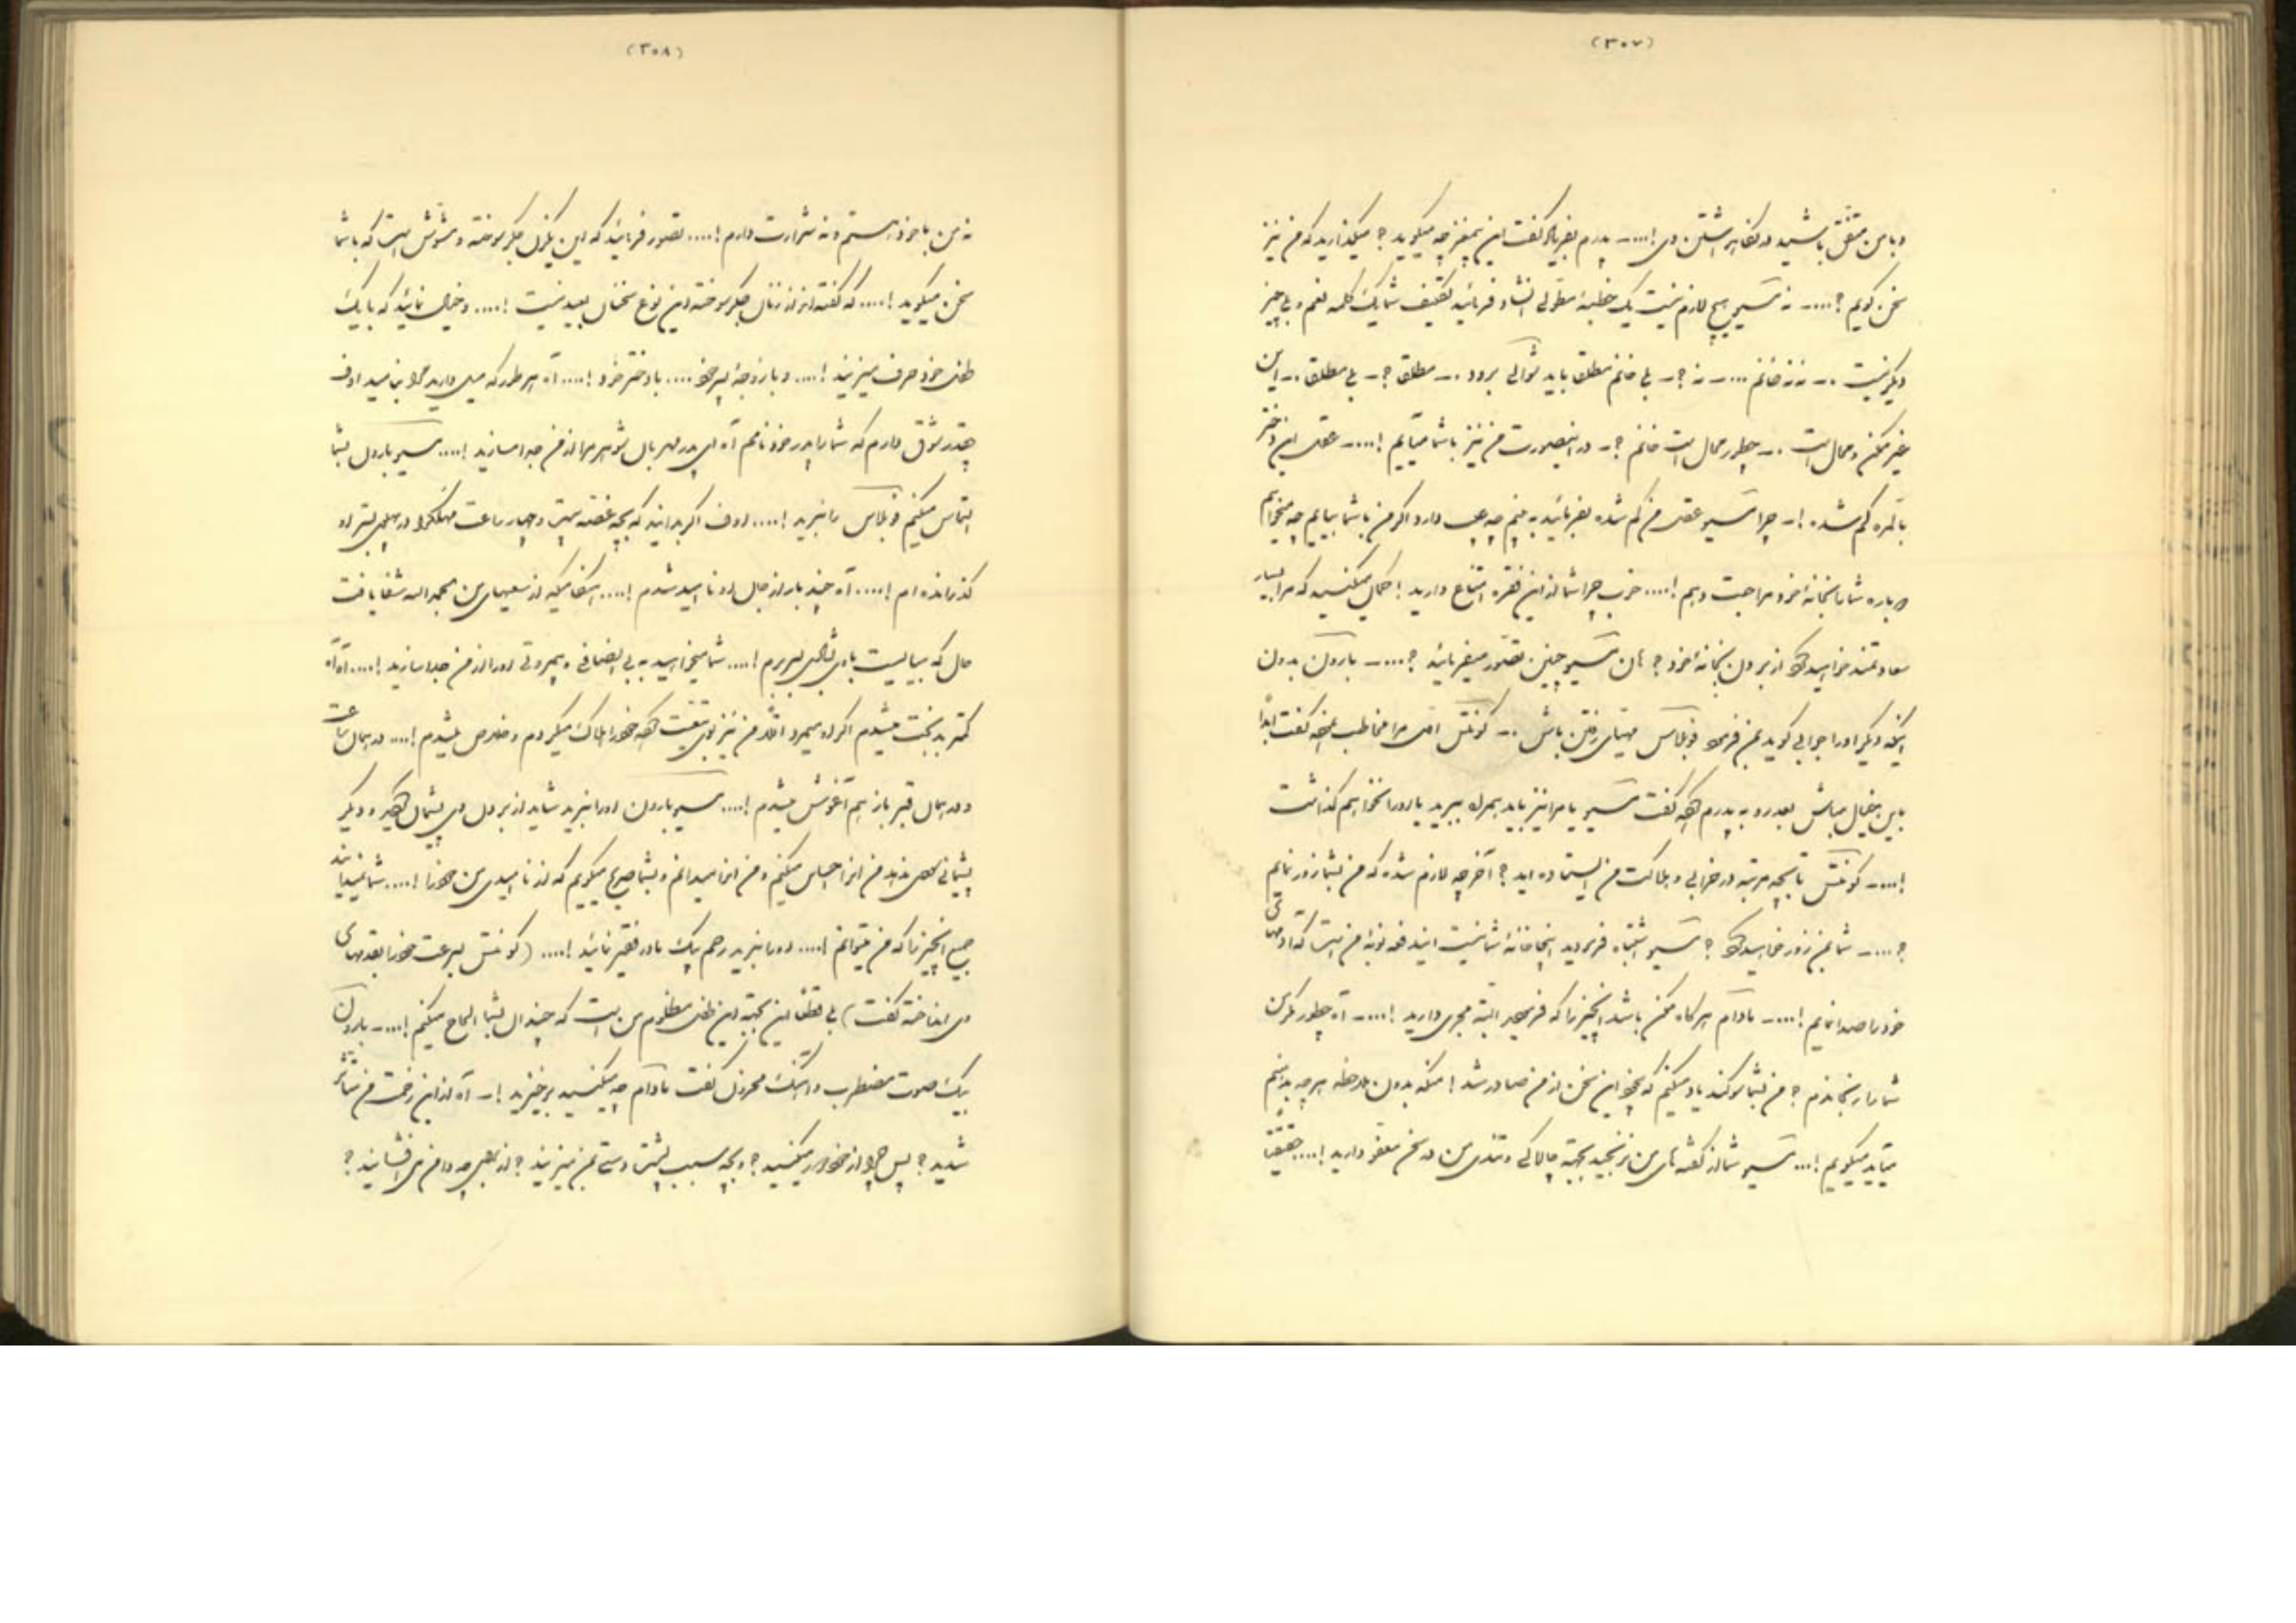 (۳۰۷)
و با من متفق باشید در نگاه داشتن وی!.... ـ پدرم بفریاد گفت این بیمغز چه میگوید؟ میگذارید که من نیز
سخن گویم؟.... ـ نه مسیو هیچ لازم نیست یک خطبهٔ مطولی انشاد فرمائید تکلیف شما یک کلمه نعم و بلی چیز
دیگر نیست .. ـ نه نه خانم .... ـ نه؟ ـ بلی خانم مطلق باید شوالی برود .. ـ مطلق؟ ـ بلی مطلق .. ـ این
غیر ممکن و محال است .. ـ چطور محال است خانم؟ ـ در اینصورت من نیز با شما میآیم!.... ـ عقل این دختر
بالمره گم شده! ـ چرا مسیو عقل من گم شده بفرمائید به بینم چه عیب دارد اگر من با شما بیایم چه میخواهم
دوباره شما را بخانهٔ خود مراجعت دهم!.... خوب چرا شما از این فقره امتناع دارید! گمان میکنید که مرا بسیار
سعادتمند خواهید کرد از بردن بخانهٔ خود؟ هان مسیو چنین تصور میفرمائید؟.... ـ بارون بدون
اینکه دیگر او را جوابی گوید بمن فرمود فوبلاس مهیای رفتن باش .. ـ کونتس امی مرا مخاطب نموده گفت ابداً
باین خیال مباش بعد رو به پدرم کرده گفت مسیو یا مرا نیز باید بهمراه ببرید یا او را نخواهم گذاشت
!.... ـ کونتس تا بچه مرتبه در خرابی و هلاکت من ایستاده اید؟ آخر چه لازم شده که من بشما زور نمایم
؟.... ـ شما بمن زور خواهید کرد؟ مسیو اشتباه فرمودید اینجا خانهٔ شما نیست ایندفعه نوبهٔ من است که آدمهای
خود را صدا نمایم!.... ـ مادام هرگاه ممکن باشد آنچیز را که فرمودید البته مجری دارید!.... ـ آه چطور مگر من
شما را رنجاندم؟ من بشما سوگند یاد میکنم که بیخود این سخن از من صادر شد! منکه بدون ملاحظه هر چه بدهنم
میآید میگویم!... مسیو شما از گفته های من نرنجید البته چالاکی و تندی من در سخن معفو دارید!.... حقیقتاً
(۳۰۸)
نه من با خود هستم و نه شرارت دارم!.... تصور فرمائید که این یکزن جگر سوخته و مشوش است که با شما
سخن میگوید!.... که گفته اند از زنان جگر سوخته این نوع سخنان بعید نیست!.... و خیال نمائید که با یک
طفل خود حرف میزنید!.... و با زوجهٔ پسر خود .... با دختر خود!.... آه هر طور که میل دارید مرا بنامید اوف
چقدر شوق دارم که شما را پدر خود نامم آه ای پدر مهربان شوهر مرا از من جدا مسازید!.... مسیو بارون بشما
التماس میکنم فوبلاس را نبرید!.... اوف اگر بدانید که بچه غصه بیست و چهار ساعت مهلک را در پهلوی بستر او
گذرانده ام!.... آه چند بار از جان او نا امید شدم!.... هنگامیکه از سعیهای من بحمدالله شفا یافت
حال که میبایست با وی بشادی بسر برم!.... شما میخواهید به بی انصافی و بیمروتی او را از من جدا سازید!.... آه آه
کمتر بدبخت میشدم اگر او میمرد اقلا من نیز وی را متابعت کرده خود را هلاک میکردم و خلاص میشدم!.... در همان ساعت
و در همان قبر باز هم آغوش میشدم!.... مسیو بارون او را نبرید شاید از بردن وی پشیمان گردید و دیگر
پشیمانی سودی ندهد من این را احساس میکنم و من این را میدانم و بشما صریح میگویم که از نا امیدی من حذر!.... شما نمیدانید
جمیع آنچیز را که من میتوانم!.... او را نبرید رحم بیک مادر فقیر نمائید!.... (کونتس بسرعت خود را بقدمهای
وی انداخته گفت) بلی قطعاً این بجهة این طفل مظلوم من است که چندان بشما الحاح میکنم!.... ـ بارون
بیک صوت مضطرب و آهنگ محزون گفت مادام چه میکنید برخیزید! ـ آه از این زحمت من متأثر
شدید؟ پس چرا از خود دور میکنید؟ و بچه سبب پشت دستی بمن میزنید؟ از بهر چه دامن می افشانید؟